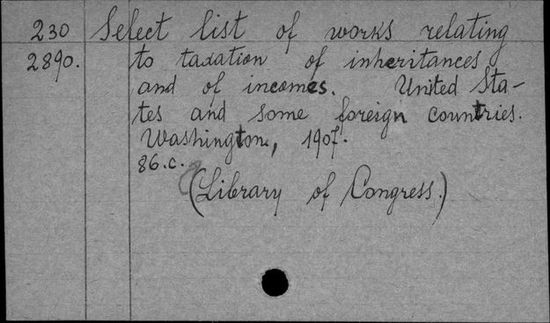 230 Select list of works relating
2890. to taxation of inheritances
and of incomes. United Sta-
tes and some foreign countries.
Washington, 1907.
86.c.
(Library of Congress.)